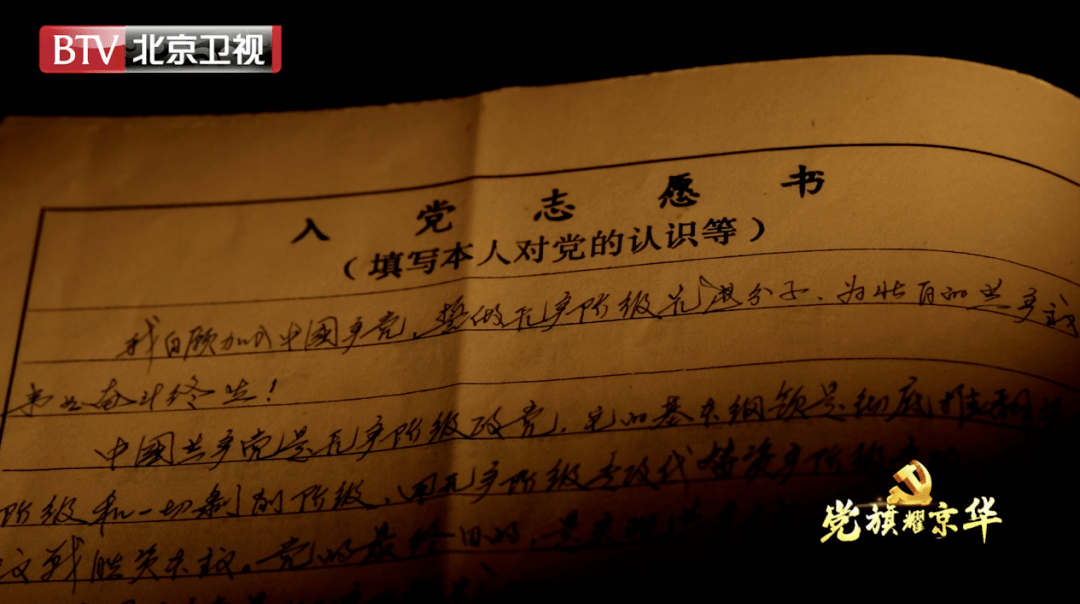 BTV 北京卫视
入党志愿书
（填写本人对党的认识等）
我自愿加入中國共产党，誓做无产阶级先进分子，为壮丽的共产主
事业奋斗终生！
中國共产党是无产阶级政党，它的基本纲领是彻底推翻
阶级和一切剥削阶级，用无产阶级专政代替资产阶级专政
义战胜资本主义。党的最终目的，是实现共产
党旗耀京华